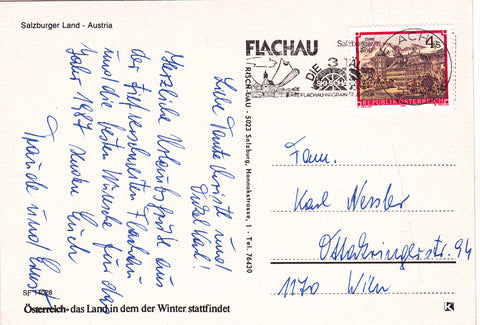 Salzburger Land - Austria
Liebe Tante Resitt und
Onkel Karl!
Herzliche Urlaubsgrüße aus
der tief verschneiten Flachau
und die besten Wünsche für das
Jahr 1987 senden Euch
Traude und Ernst
SF 14028
Österreich - das Land in dem der Winter stattfindet
RISCH-LAU - 5023 Salzburg, Hannakstrasse, 1 - Tel. 76430
FLACHAU
Salzburger
DIE 3
FLACHAU
REPUBLIK ÖSTERREICH
4
Fam.
Karl Nessler
Ottakringerstr. 94
1170 Wien
K